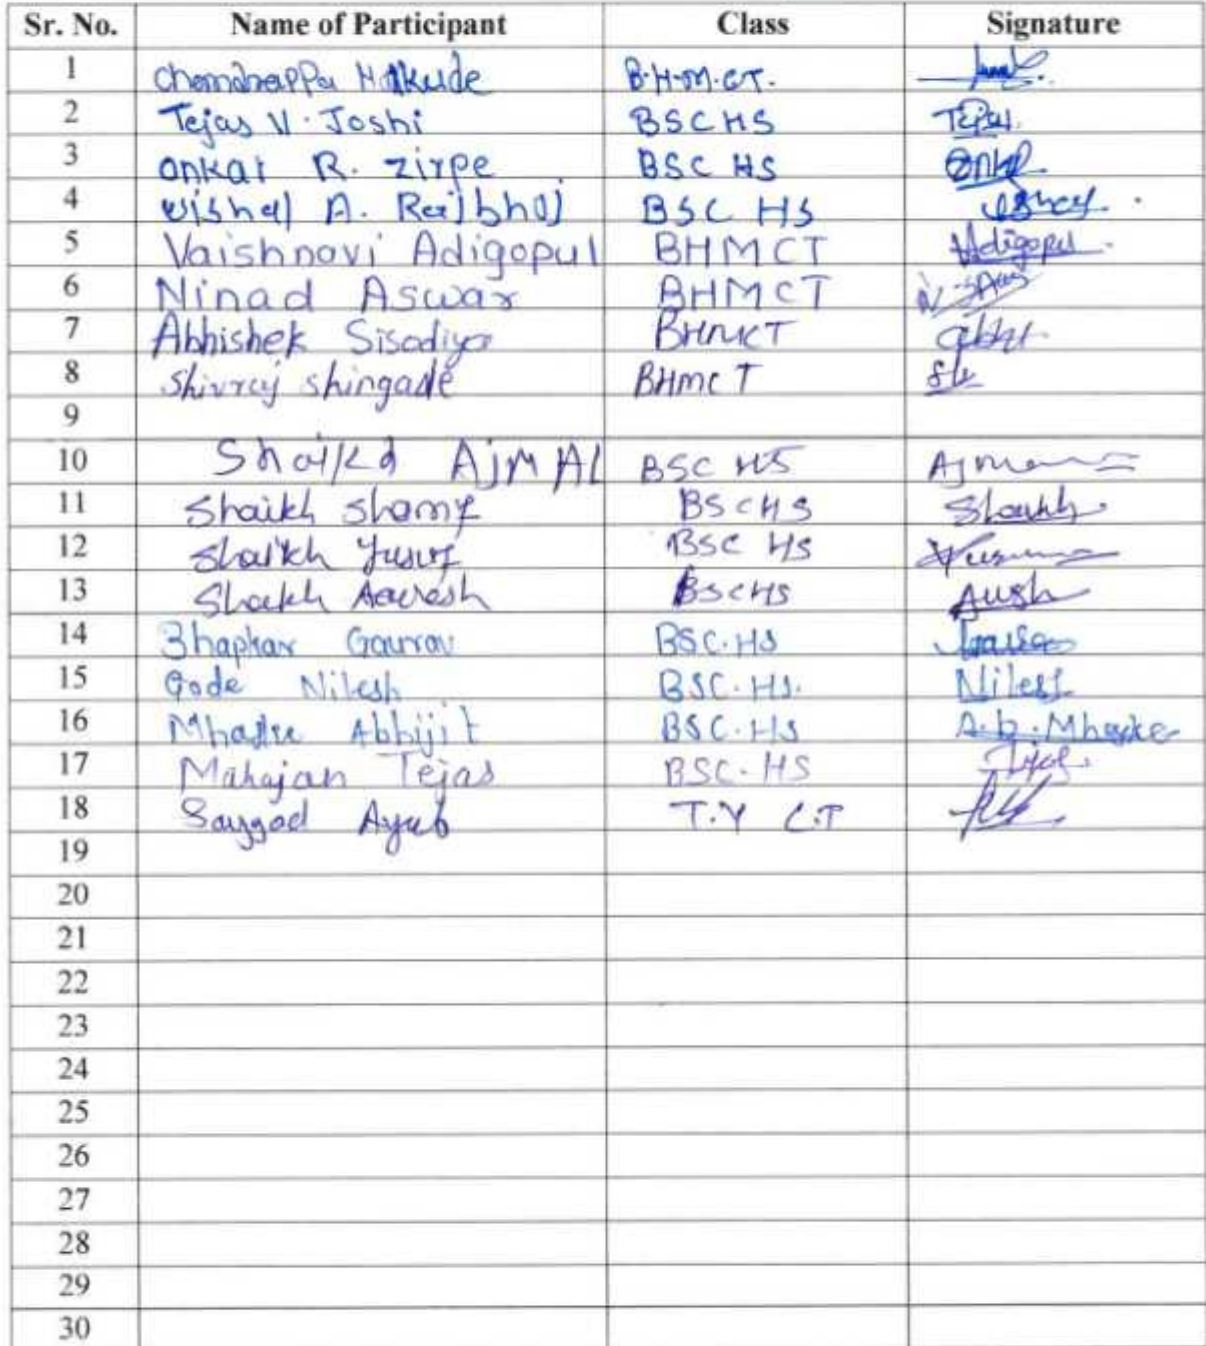 Sr. No. Name of Participant Class Signature
1 Chandrappa Halkude B.H.M.CT.
2 Tejas V. Joshi BSCHS Tejas.
3 Onkar R. Zirpe BSC HS Onkar
4 Vishal A. Rajbhoj BSC HS
5 Vaishnavi Adigopul BHMCT VAdigopul
6 Ninad Aswar BHMCT
7 Abhishek Sisodiya BHMCT
8 Shivraj Shingade BHMCT
9
10 Shaikh AjMAL BSC HS
11 Shaikh BSCHS Shaikh
12 Shaikh Yusuf BSC HS
13 Shaikh BSCHS
14 Bhapkar Gaurav BSC.HS
15 Gode Nilesh BSC.HS. Nilesh
16 Abhijit BSC.HS A.b.Mhaske
17 Mahajan Tejas BSC.HS
18 Sayyad Ayub T.Y C.T
19
20
21
22
23
24
25
26
27
28
29
30